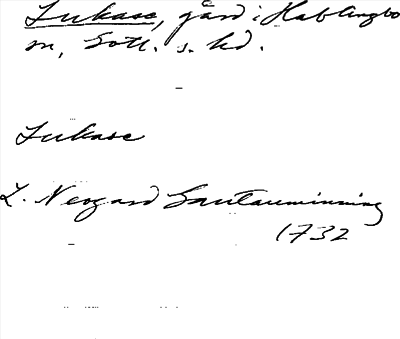 Lukase, gård i Hablingbo
sn, Gotl. s. hd.
Lukase
L. Neogard Gautauminning
1732